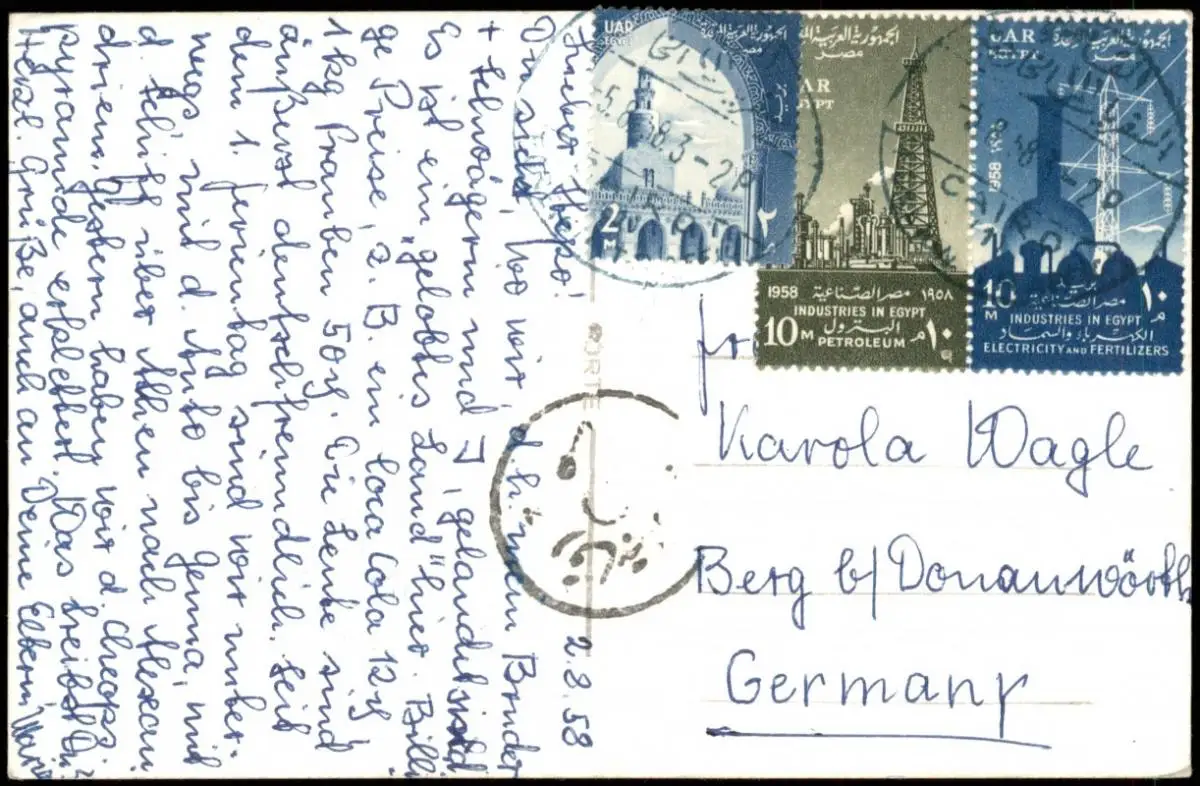 2.8.58
Lieber Hepo!
Du siehst, wo wir, d. h. mein Bruder
+ Schwägerin und J, gelandet sind
Es ist ein „gelobtes Land" hier. Billi
ge Preise, z. B. ein Coca Cola 12
1 kg Trauben 50. Die Leute sind
äußerst deutschfreundlich. Seit
dem 1. Ferientag sind wir unter-
wegs mit d. Auto bis Genua, mit
d. Schiff über Athen nach Alexan
drien. Gestern haben wir d. Cheops
pyramide erklettert. Was treibst Du?
Herzl. Grüße, auch an Deine Eltern,
UAR
EGYPT
الجمهورية العربية المتحدة
مصر
بريد
2 M
٢ م
الجمهورية العربية المتحدة
مصر
UAR
EGYPT
1958 مصر الصناعية ١٩٥٨
INDUSTRIES IN EGYPT
البترول
10 M PETROLEUM ١٠ م
UAR
EGYPT
الجمهورية العربية المتحدة
مصر
1958
بريد
10 M
١٠ م
مصر الصناعية
INDUSTRIES IN EGYPT
الكهرباء والسماد
ELECTRICITY AND FERTILIZERS
CAIRO
PORTE
Karola Wagle
Berg b/ Donauwörth
Germany